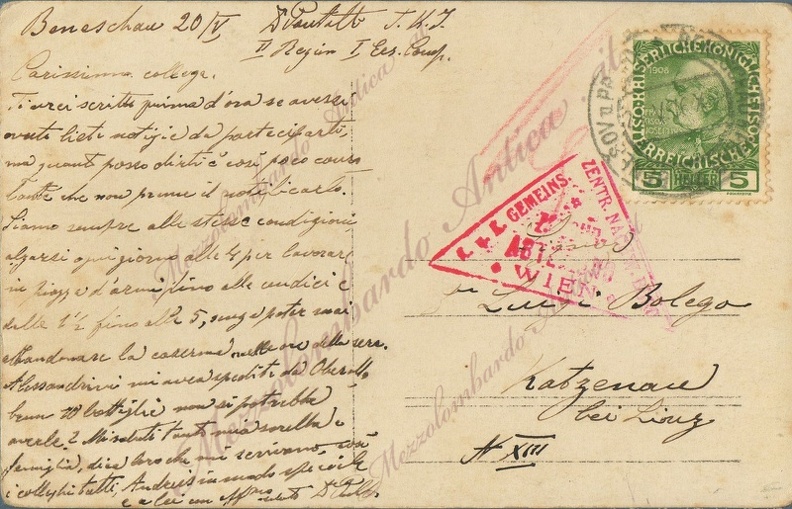 Beneschau 20/V D Pautitti I.K.I.
II Region I Ers. Comp.
Carissimo collega.
Ti avrei scritto prima d'ora se avessi
avuto liete notizie da parteciparti,
ma quanto posso dirti è così poco conso-
lante che non preme il notificarlo.
Siamo sempre alle stesse condizioni,
alzarsi ogni giorno alle 4 per lavorare
in piazza d'armi fino alle undici e
dalle 1½ fino alle 5, senza poter mai
abbandonare la caserma nelle ore della sera.
Alessandrini mi avea spedito da
10 bottiglie non si potrebbe
averle? Mi saluti tanto sua sorella e
famiglia, dica loro che mi scrivano, così
i colleghi tutti, in modo speciale
e a lei un saluto D
Luigi Bolego
Katzenau
bei Linz
N XIII
K. u. K. GEMEINS. ZENTR. NACHW. BUREAU
WIEN
KAISERLICHE KÖNIGLICHE ÖSTERREICHISCHE
1908
5 HELLER 5
Mezzolombardo Antica
Mezzolombardo Antica . it
Mezzolombardo Antica
Mezzolombardo